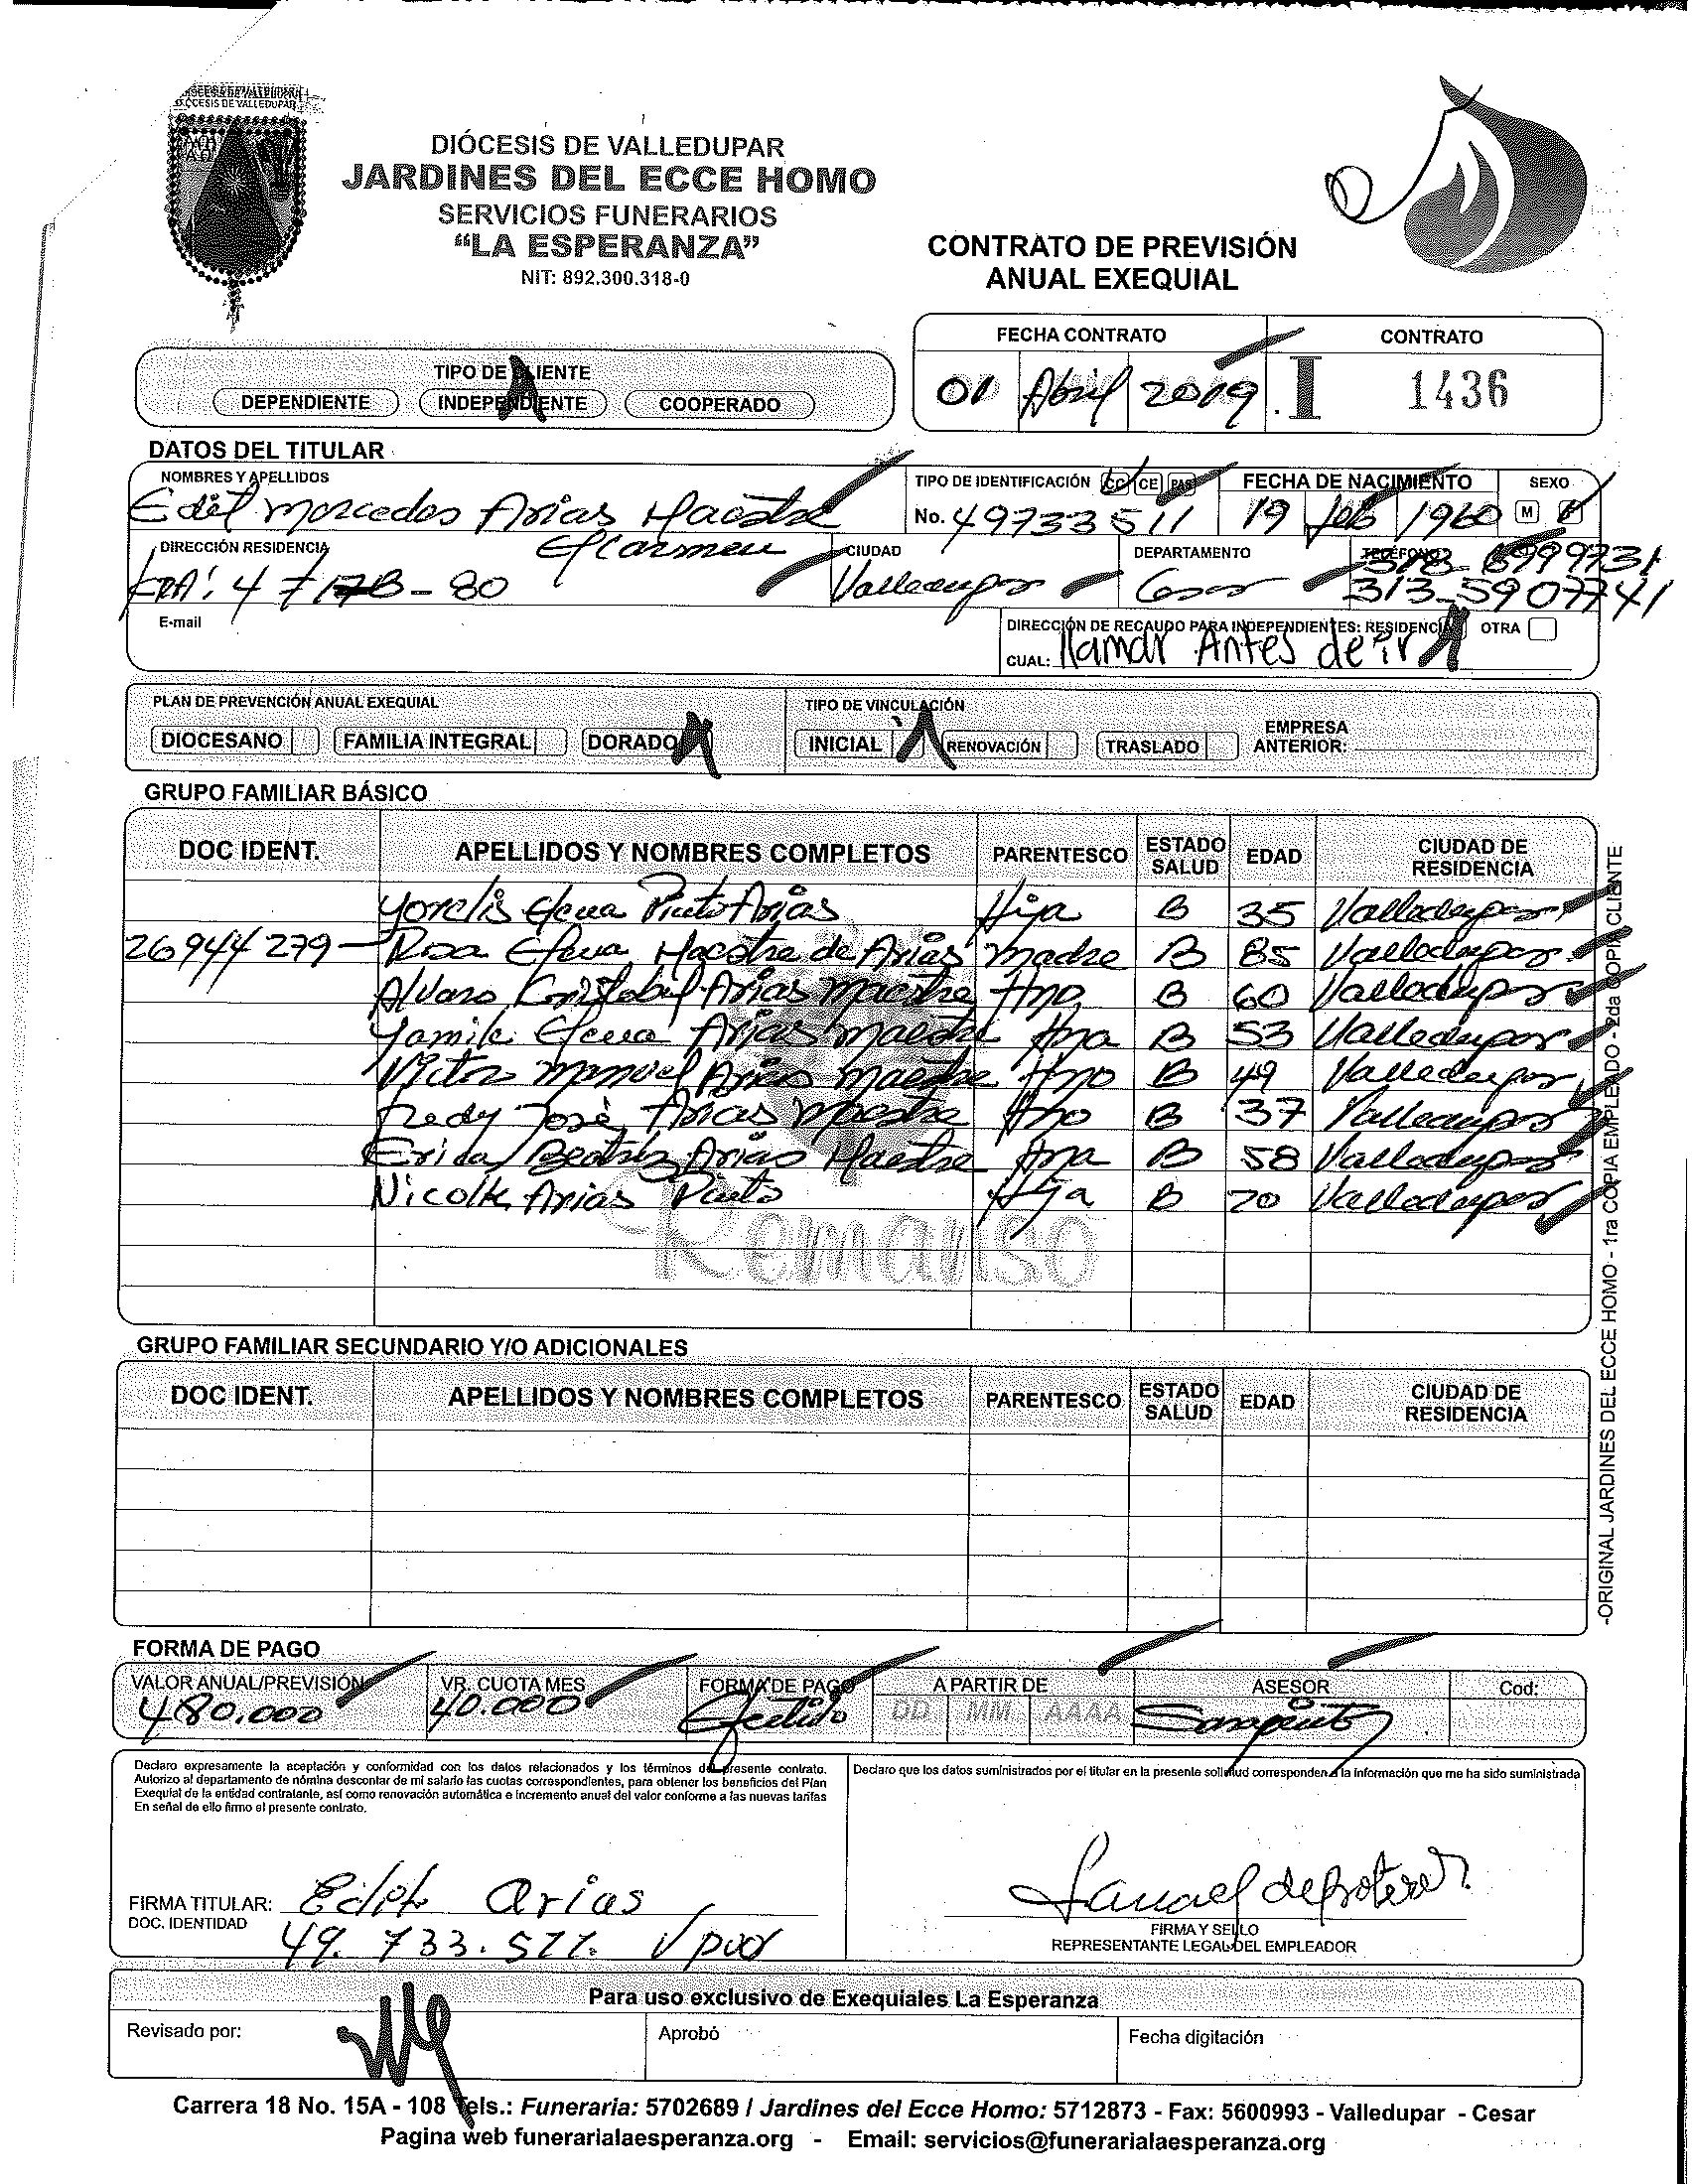 DIÓCESIS DE VALLEDUPAR
DIÓCESIS DE VALLEDUPAR
JARDINES DEL ECCE HOMO
SERVICIOS FUNERARIOS
“LA ESPERANZA”
NIT: 892.300.318-0
CONTRATO DE PREVISIÓN
ANUAL EXEQUIAL
FECHA CONTRATO CONTRATO
01 Abril 2019 I 1436
TIPO DE CLIENTE
DEPENDIENTE INDEPENDIENTE COOPERADO
DATOS DEL TITULAR
NOMBRES Y APELLIDOS TIPO DE IDENTIFICACIÓN CC CE PAS FECHA DE NACIMIENTO SEXO
Edit Mercedes Arias Maestre No. 49733511 19 feb 1960 M F
DIRECCIÓN RESIDENCIA El Carmen CIUDAD DEPARTAMENTO TELÉFONO 318-6999731
CRA: 4 # 17B-80 Valledupar Cesar 313-5907741
E-mail DIRECCIÓN DE RECAUDO PARA INDEPENDIENTES: RESIDENCIA OTRA
CUAL: llamar Antes de ir
PLAN DE PREVENCIÓN ANUAL EXEQUIAL TIPO DE VINCULACIÓN
DIOCESANO FAMILIA INTEGRAL DORADO INICIAL RENOVACIÓN TRASLADO EMPRESA ANTERIOR:
GRUPO FAMILIAR BÁSICO
DOC IDENT. APELLIDOS Y NOMBRES COMPLETOS PARENTESCO ESTADO SALUD EDAD CIUDAD DE RESIDENCIA
Yorelis Elena Pinto Arias Hija B 35 Valledupar
26944279- Rosa Elena Maestre de Arias Madre B 85 Valledupar
Alvaro Cristobal Arias Maestre Hno B 60 Valledupar
Yamile Elena Arias Maestre Hna B 53 Valledupar
Victor Manuel Arias Maestre Hno B 49 Valledupar
Fredy José Arias Maestre Hno B 37 Valledupar
Erida Beatriz Arias Maestre Hna B 58 Valledupar
Nicolle Arias Pinto Hija B 20 Valledupar
Remanso
GRUPO FAMILIAR SECUNDARIO Y/O ADICIONALES
DOC IDENT. APELLIDOS Y NOMBRES COMPLETOS PARENTESCO ESTADO SALUD EDAD CIUDAD DE RESIDENCIA
-ORIGINAL JARDINES DEL ECCE HOMO - 1ra COPIA EMPLEADO - 2da COPIA CLIENTE
FORMA DE PAGO
VALOR ANUAL/PREVISIÓN VR. CUOTA MES FORMA DE PAGO A PARTIR DE ASESOR Cod:
480.000 40.000 Efectivo DD MM AAAA
Declaro expresamente la aceptación y conformidad con los datos relacionados y los términos del presente contrato.
Autorizo al departamento de nómina descontar de mi salario las cuotas correspondientes, para obtener los beneficios del Plan
Exequial de la entidad contratante, así como renovación automática e incremento anual del valor conforme a las nuevas tarifas
En señal de ello firmo el presente contrato.
Declaro que los datos suministrados por el titular en la presente solicitud corresponden a la información que me ha sido suministrada
FIRMA TITULAR: Edith Arias
DOC. IDENTIDAD 49.733.511. Vpar
FIRMA Y SELLO
REPRESENTANTE LEGAL DEL EMPLEADOR
Para uso exclusivo de Exequiales La Esperanza
Revisado por: Aprobó Fecha digitación
Carrera 18 No. 15A - 108 Tels.: Funeraria: 5702689 / Jardines del Ecce Homo: 5712873 - Fax: 5600993 - Valledupar - Cesar
Pagina web funerarialaesperanza.org - Email: servicios@funerarialaesperanza.org